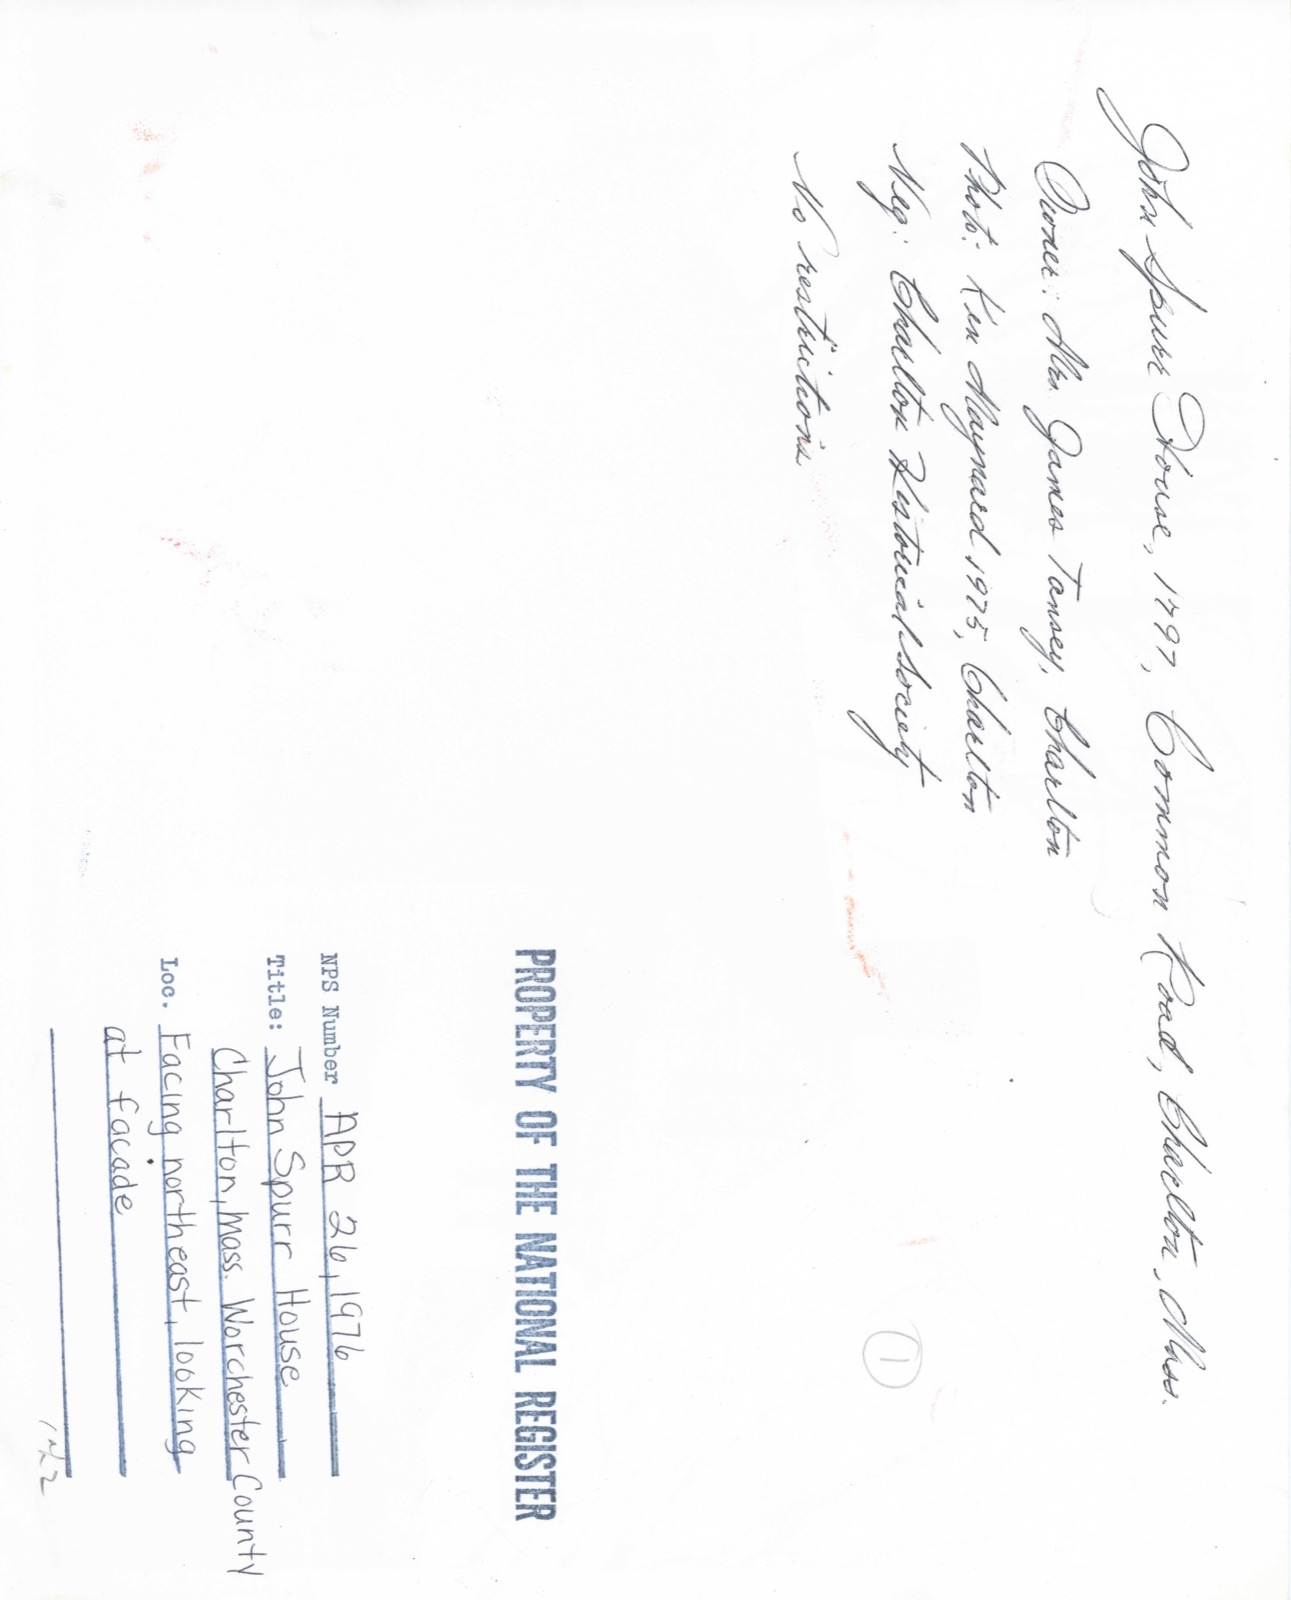 John Spurr House, 1797, Common Road, Charlton, Mass.
Owner: Mrs. James Tansey, Charlton
Photo: Ken Maynard 1975, Charlton
Neg: Charlton Historical Society
No restrictions
1
PROPERTY OF THE NATIONAL REGISTER
NPS Number APR 26, 1976
Title: John Spurr House
Charlton, Mass. Worchester County
Loc. Facing northeast, looking
at facade